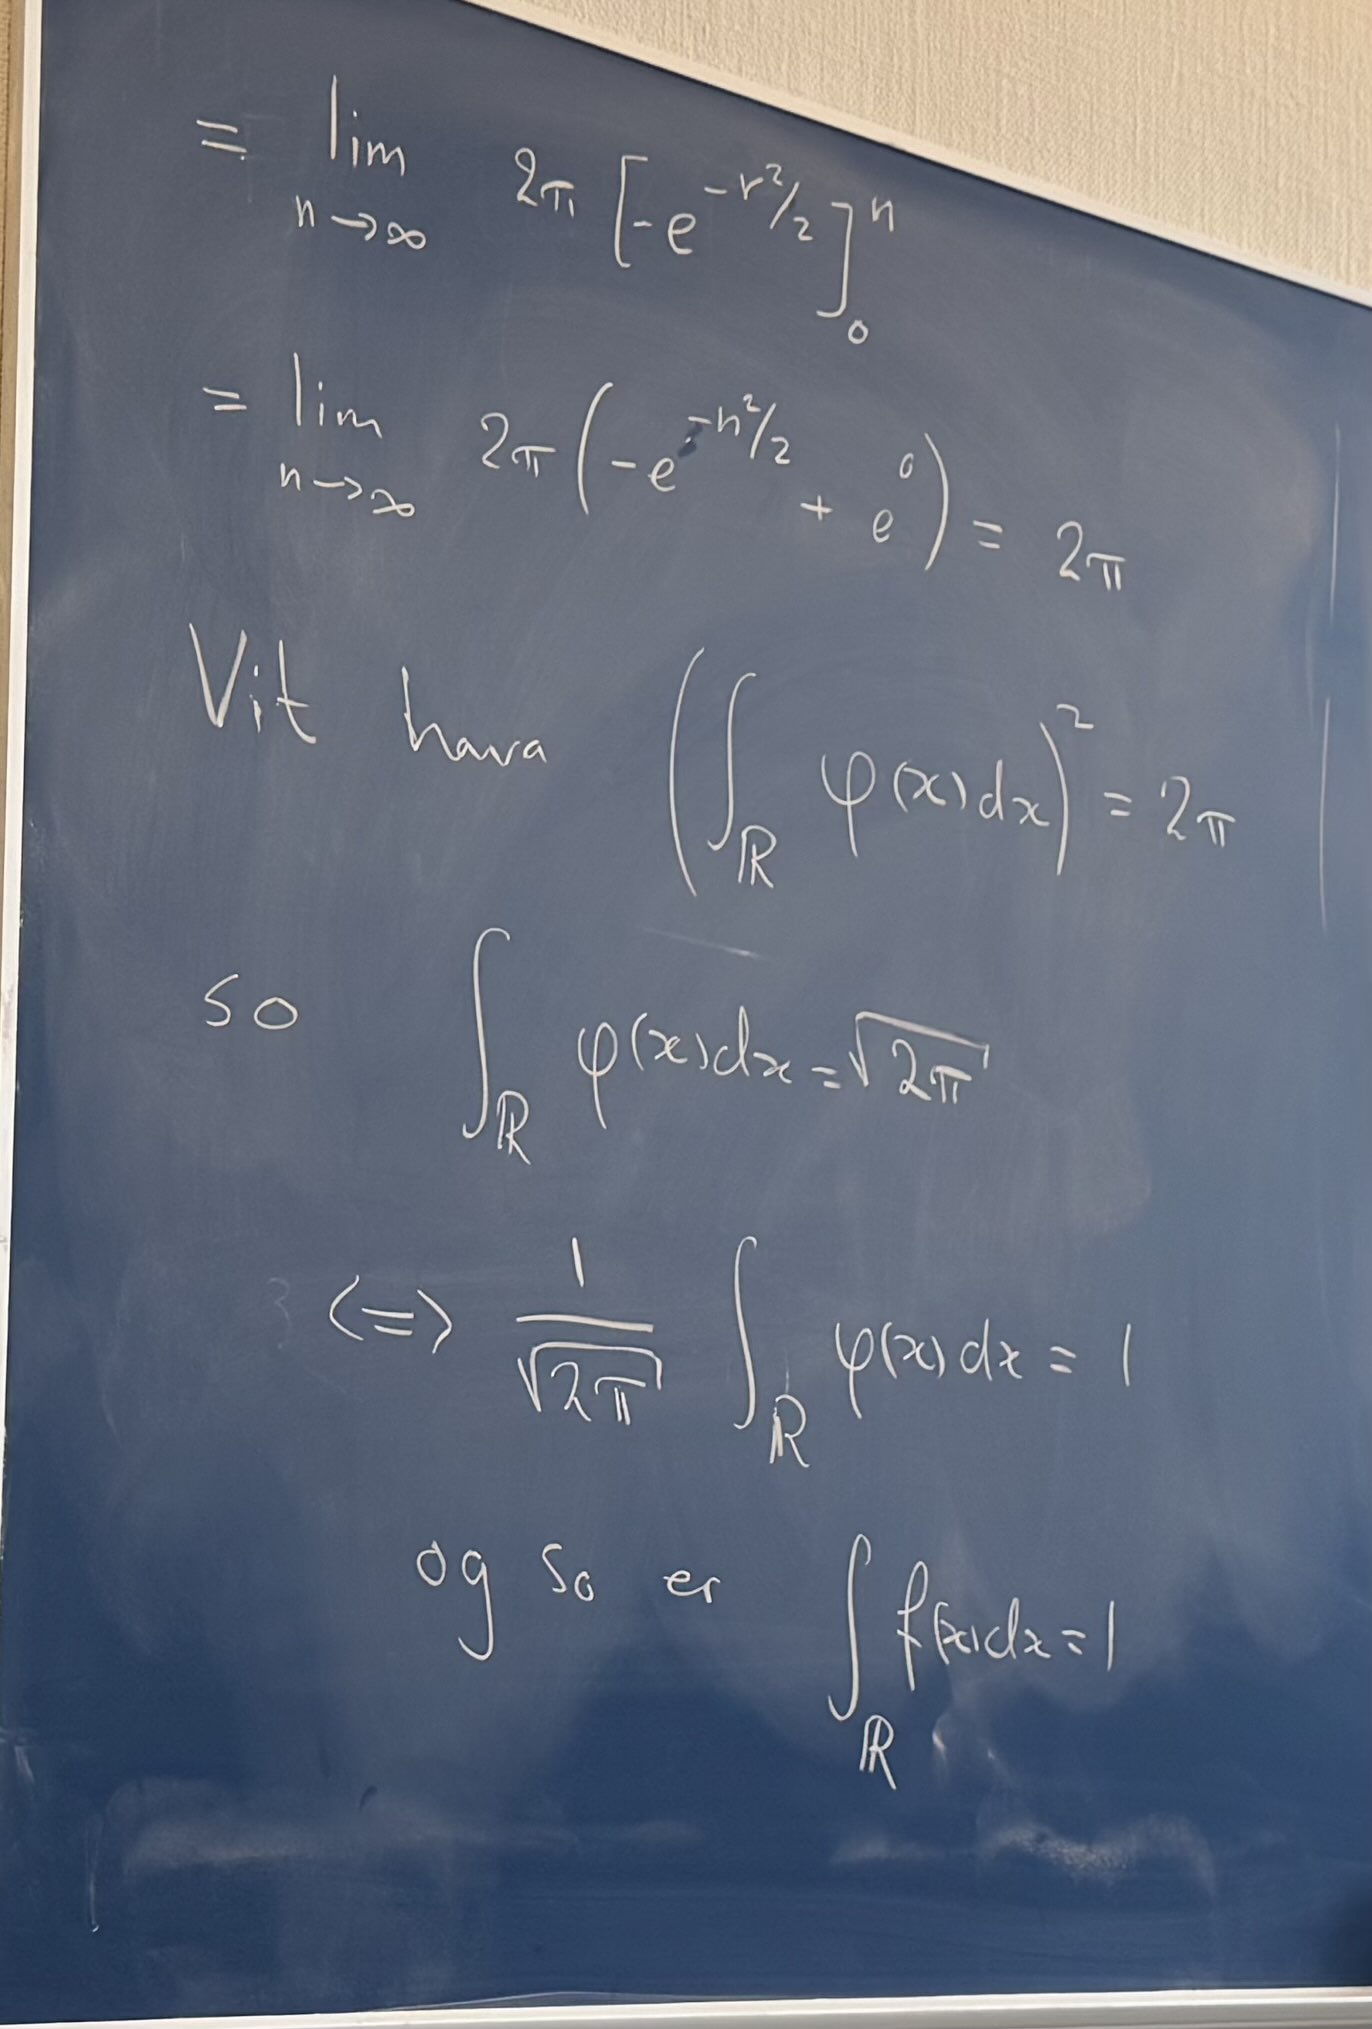 = lim_{n→∞} 2π [-e^{-r²/2}]_0^n
= lim_{n→∞} 2π (-e^{-n²/2} + e^0) = 2π
Vit hava (∫_ℝ φ(x)dx)² = 2π
so ∫_ℝ φ(x)dx = √2π
<=> 1/√2π ∫_ℝ φ(x)dx = 1
og so er ∫_ℝ f(x)dx = 1